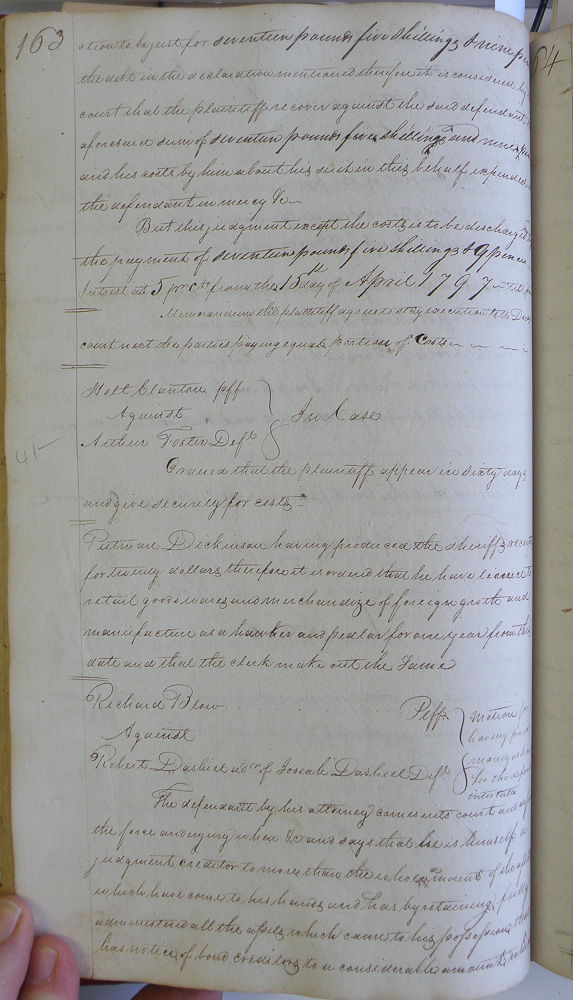 163
ation to be just for seventeen pounds five shillings & nine
the debt in the declaration mentioned therefore it is considered by
court that the plaintiff recover against the said defendant
aforesaid sum of seventeen pounds five shillings and nine
and his costs by him about his suit in this behalf expended
the defendant in mercy &c
But this judgment except the costs is to be discharged
the payment of seventeen pounds five shillings & 9 pence
Interest at 5 pr Ct from the 15th day of April 1797
Memorandum the plaintiff agrees to stay execution
court next the parties paying equal portion of Costs
Holt Clanton plff
Against
Arthur Foster Deft
In Case
41
Ordered that the plaintiff appear in sixty days
and give security for costs
Putman Dickinson having produced the sheriffs
for twenty dollars therefore it is ordered that he have licence to
retail goods wares and merchandize of foreign growth and
manufacture as a hawker and pedlar for one year from this
date and that the clerk make out the Same
Richard Blow Plff
Against
Robert Dashiel adr of Josiah Dashiel Deft
Motion for
having paid
money as
for the
intestate
The defendant by his attorney comes into court and
the force and injury when &c and says that he is himself a
judgment creditor to more than the whole amount of the
which have come to his hands and has by retaining fully
administered all the assets which came to his possession
has notice of bond creditors to a considerable amount
64